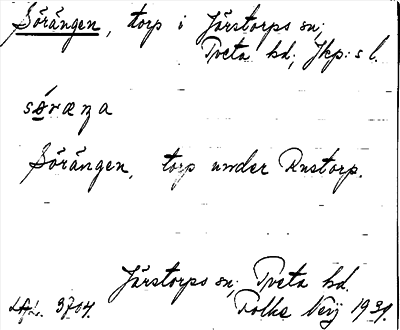 Sörängen, torp i Järstorps sn;
Tveta hd; Jkp:s l.
søræŋa
Sörängen, torp under Rustorp.
Järstorps sn; Tveta hd.
3704. Folke Verij 1931.